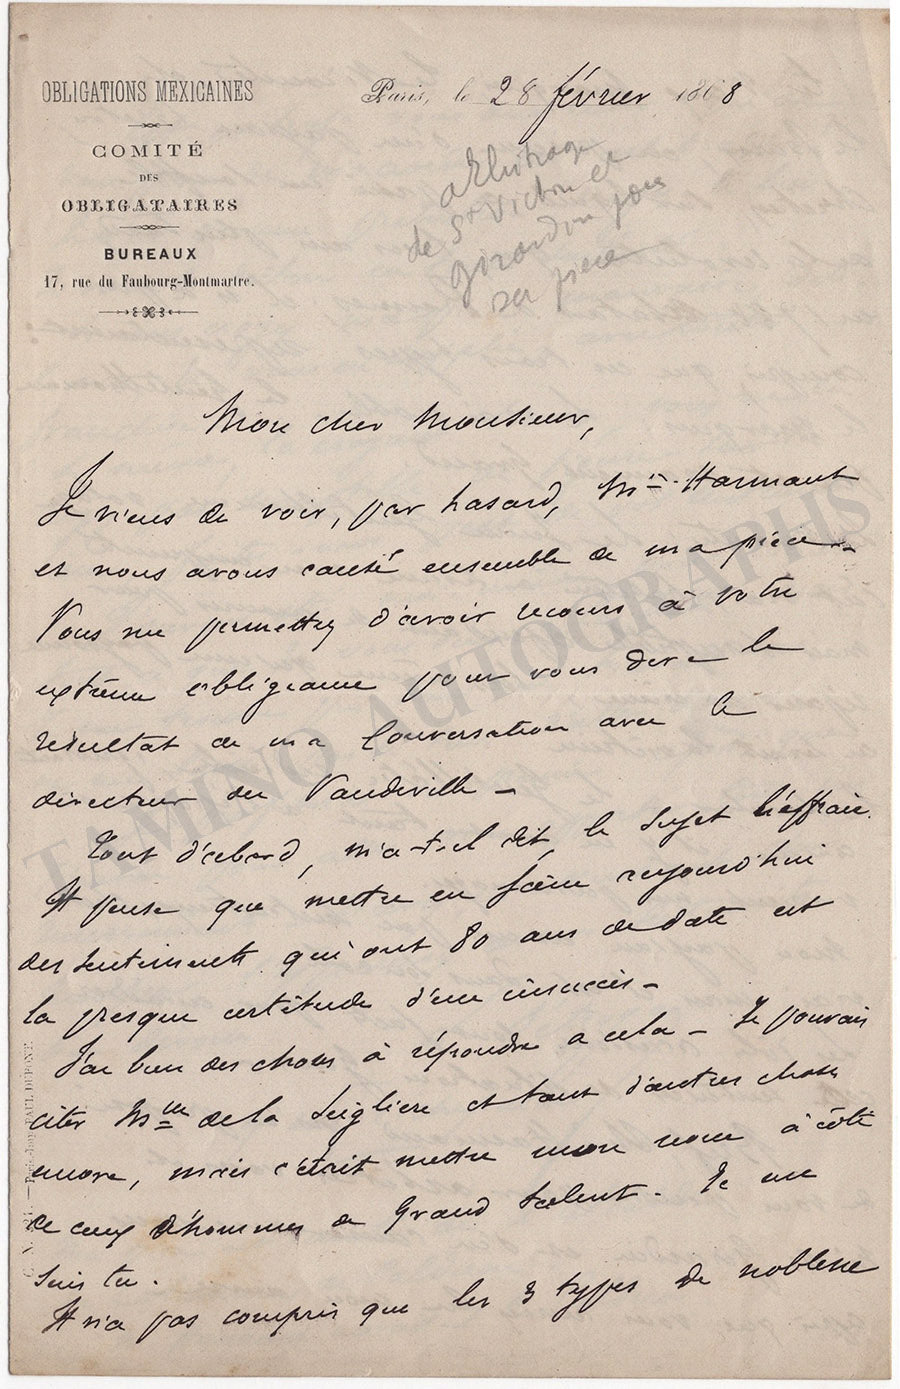 OBLIGATIONS MEXICAINES
COMITÉ
DES
OBLIGATAIRES
BUREAUX
17, rue du Faubourg-Montmartre.
Paris, le 28 février 1868
arbitrage
de St Victor et
Girardin pour
sa pièce
Mon cher Monsieur,
Je viens de voir, par hasard, Mr Harmant
et nous avons causé ensemble de ma pièce.
Vous me permettez d'avoir recours à votre
extrême obligeance pour vous dire le
résultat de ma Conversation avec le
directeur du Vaudeville –
Tout d'abord, m'a-t-il dit, le sujet l'effraie.
Il pense que mettre en scène aujourd'hui
des sentiments qui ont 80 ans de date est
la presque certitude d'un insuccès –
J'ai bien des choses à répondre a cela – Je pouvais
citer Mlle de la Seiglière et tant d'autres choses
encore, mais c'était mettre mon nom à côté
de ceux d'hommes de Grand talent. Je me
suis tu.
Il n'a pas compris que les 3 types de noblesse
TAMINO AUTOGRAPHS
PAUL DUPONT